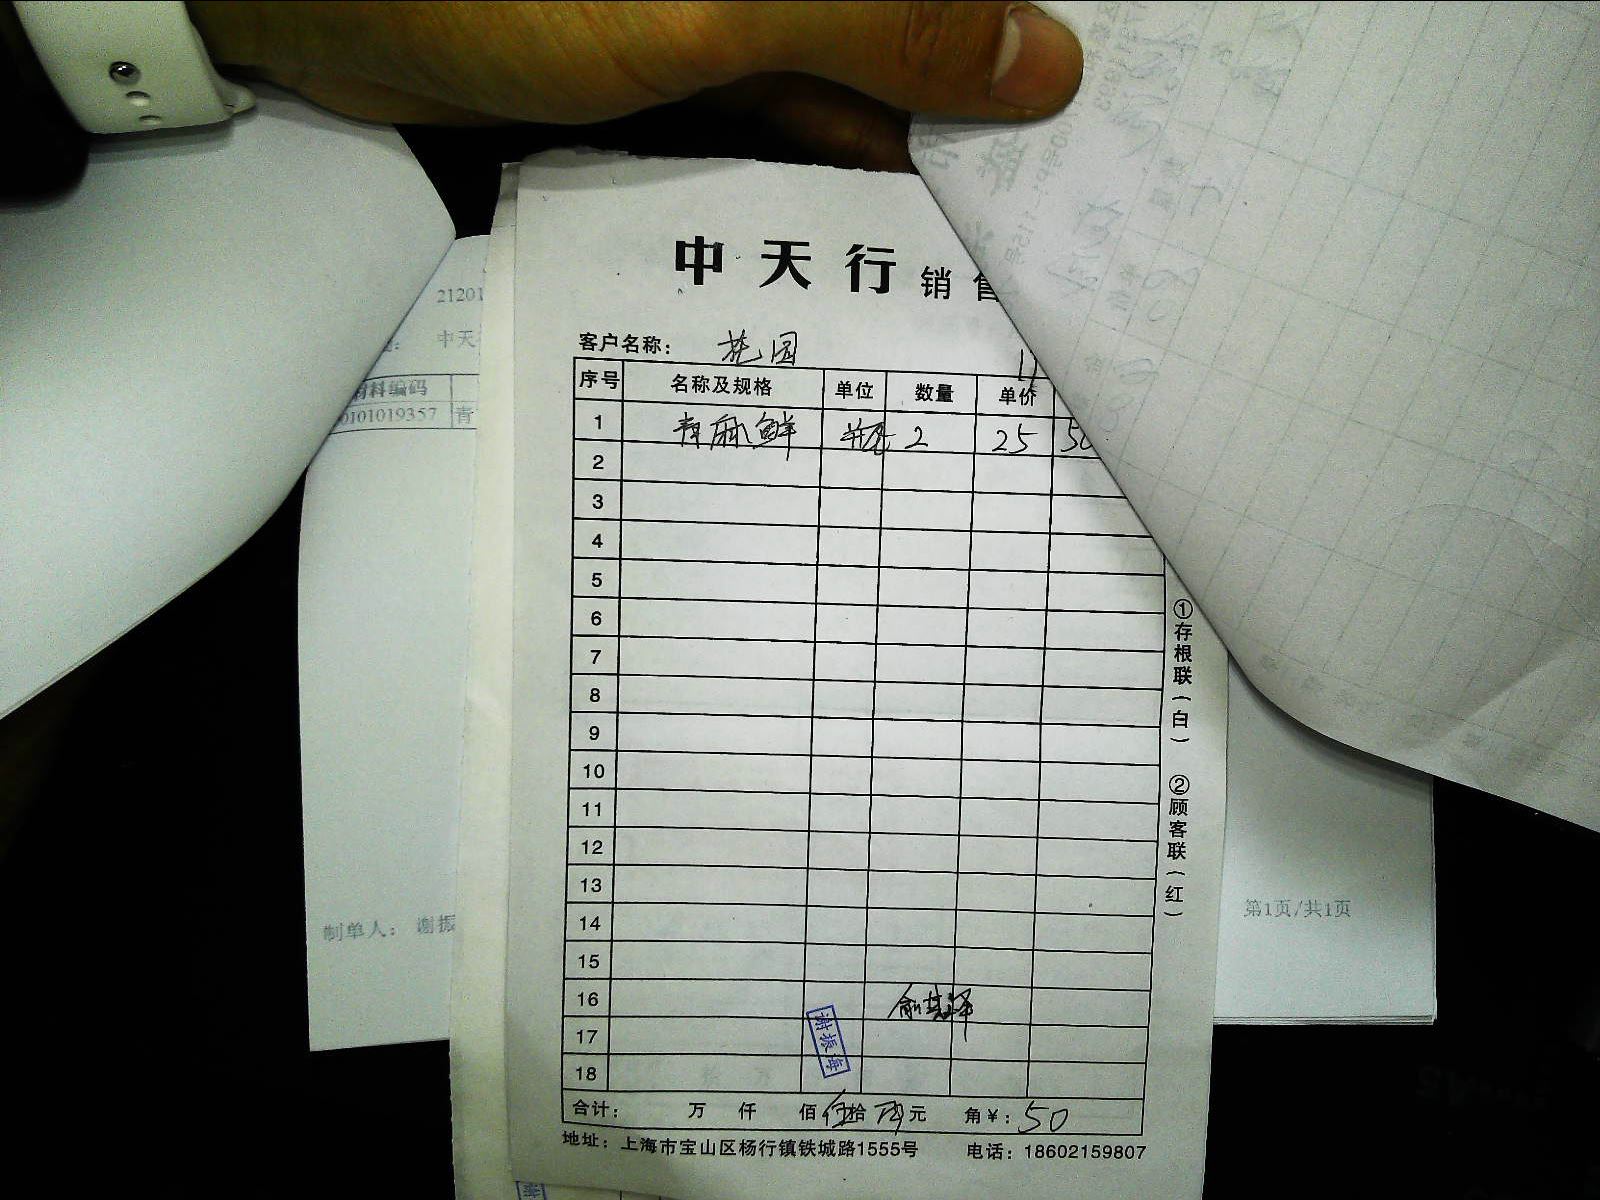 中天行 销售
客户名称： 花园
序号 名称及规格 单位 数量 单价
1 青麻鲜 瓶 2 25 50
2
3
4
5
6
7
8
9
10
11
12
13
14
15
16
17
18
谢振海
合计： 万 仟 佰 伍拾 元 角 ¥：50
地址：上海市宝山区杨行镇铁城路1555号 电话：18602159807
①存根联（白） ②顾客联（红）
21201
中天
料编码
0101019357 青
制单人： 谢振
第1页/共1页